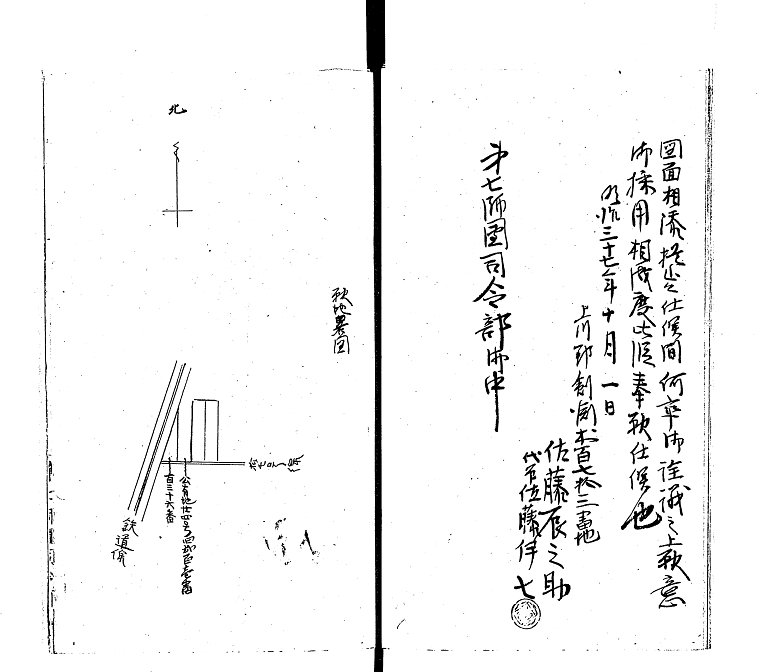 図面相添提出仕候間何卒御詮議之上願意
御採用相成度此段奉願仕候也
明治三十七年十月一日
上川郡剣淵村百七拾三番地
佐藤辰之助
代書佐藤伊七
第七師団司令部御中
願地畧図
北
公有地廿四号四百壱番
百三十六番
鉄道線